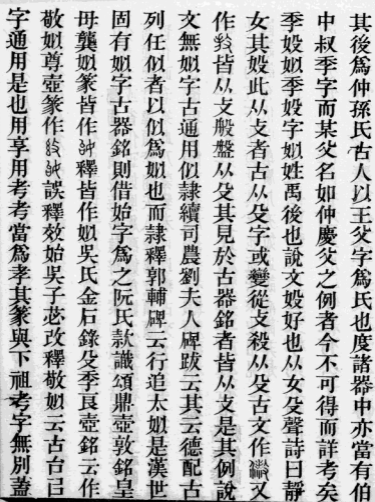 其後爲仲孫氏古人以王父字爲氏也度諸器中亦當有伯
中叔季字而某父名如仲慶父之例者今不可得而詳考矣
季㚼姒季㚼字姒姓禹後也說文㚼好也从女殳聲詩曰靜
女其㚼此从攴者古从殳字或變從攴殺从殳古文作
作皆从攴般盤从殳其見於古器銘者皆从攴是其例說
文無姒字古通用似隸續司農劉夫人碑跋云其云德配古
列任似者以似爲姒也而隸釋郭輔碑云行追太姒是漢世
固有姒字古器銘則借始字爲之阮氏款識頌鼎壺敦銘皇
母龔姒篆皆作釋皆作姒吳氏金石錄殳季良壺銘云作
敬姒尊壺篆作誤釋效始吳子苾改釋敬姒云古台㠯
字通用是也用享用考考當爲孝其篆與下祖考字無別蓋